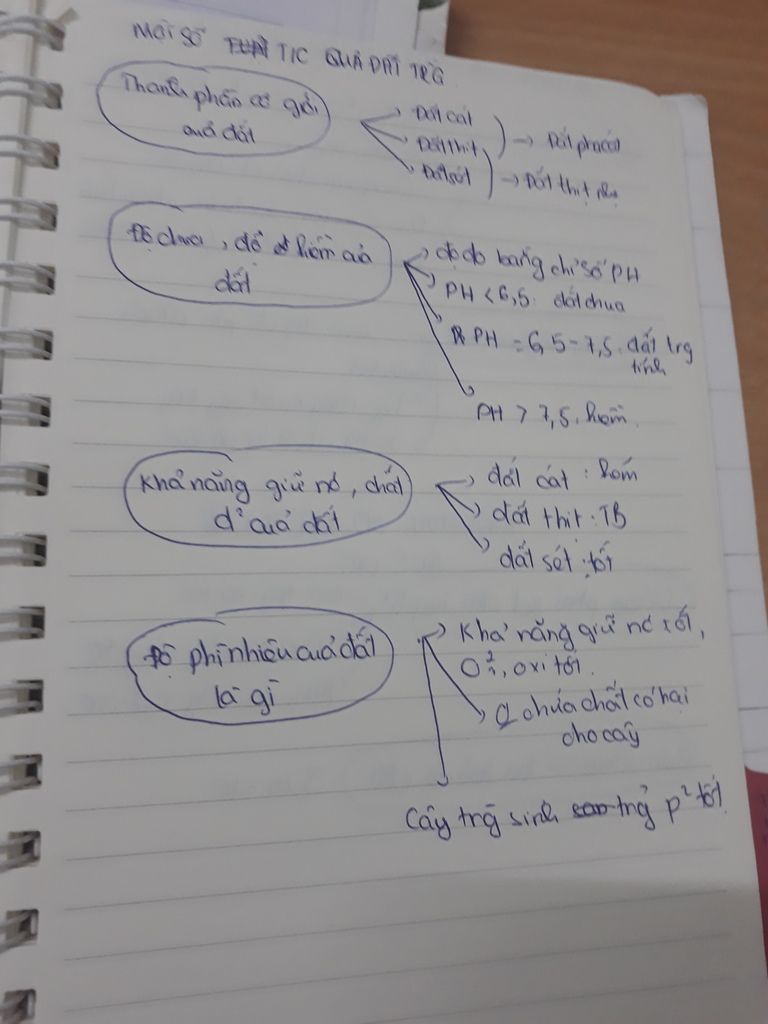 MỘT SỐ T/C QUẢ ĐẤT TRG
Thành phần cơ giới
quả đất
Đất cát
Đất thịt
Đất sét
→ Đất pha cát
→ Đất thịt nhẹ
Độ chua, độ kiềm củả
đất
độ đo bằng chỉ số PH
PH < 6,5. đất chua
PH = 6,5 - 7,5. đất trg
tính
PH > 7,5. kiềm.
Khả năng giữ nc, chất
d² quả đất
đất cát : kém
đất thịt : TB
đất sét : tốt
Độ phì nhiêu cuả đất
là gì
Khả năng giữ nc tốt,
oxi tốt.
chứa chất có hại
cho cây
Cây trg sinh trg p² tốt.